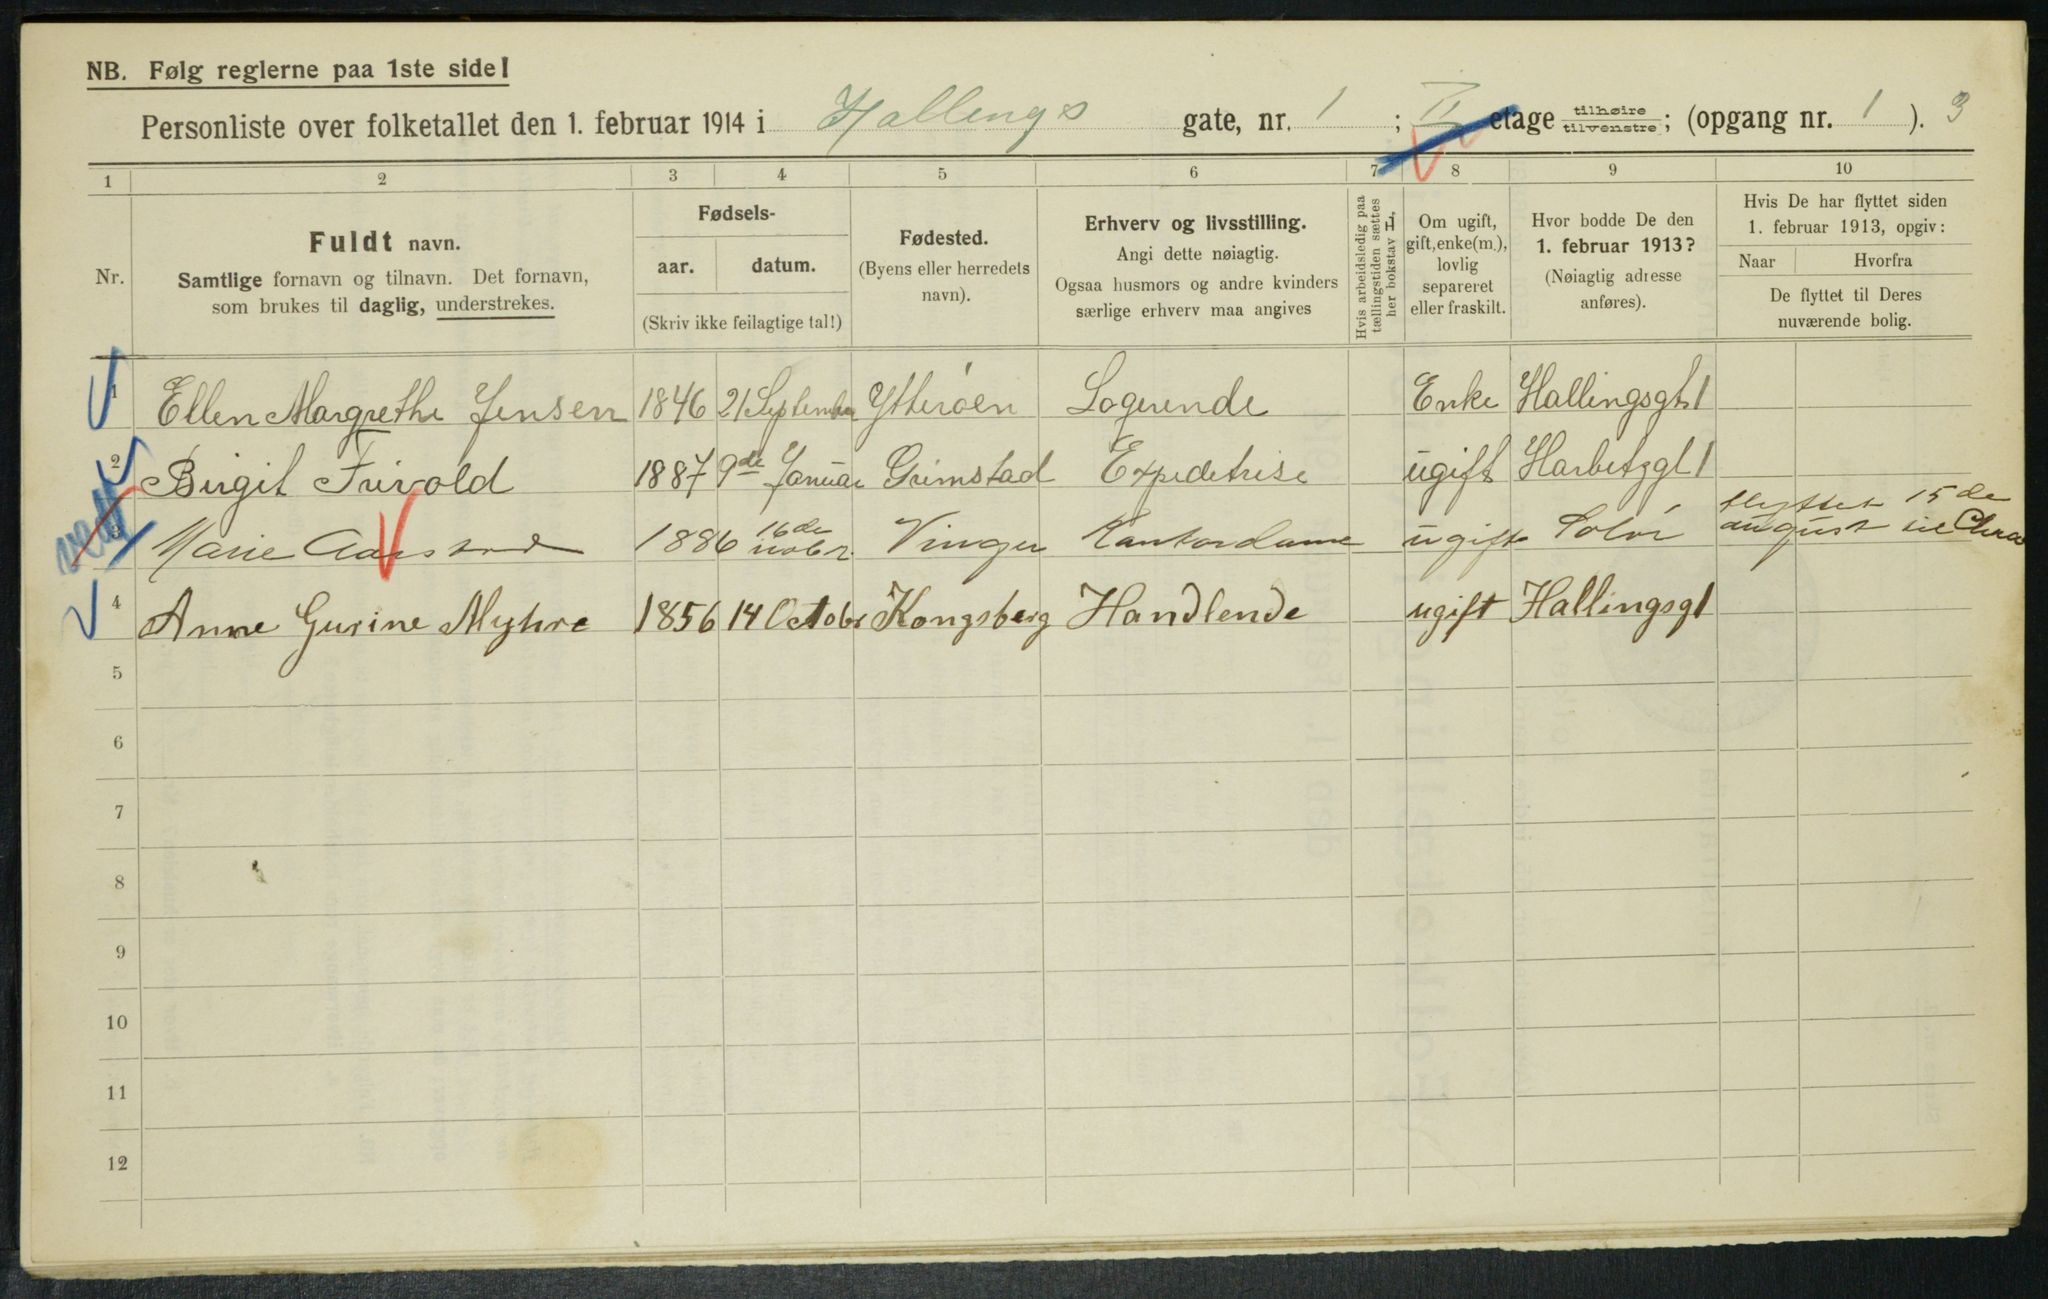 NB. Følg reglerne paa 1ste side!
Personliste over folketallet den 1. februar 1914 i Hallings gate, nr. 1; II etage tilhøire/tilvenstre; (opgang nr. 1). 3
1 2 3 4 5 6 7 8 9 10
Nr.
Fuldt navn.
Samtlige fornavn og tilnavn. Det fornavn,
som brukes til daglig, understrekes.
Fødsels-
aar. datum.
(Skriv ikke feilagtige tal!)
Fødested.
(Byens eller herredets
navn).
Erhverv og livsstilling.
Angi dette nøiagtig.
Ogsaa husmors og andre kvinders
særlige erhverv maa angives
Hvis arbeidsledig paa
tællingstiden sættes
her bokstav L.
Om ugift,
gift, enke(m.),
lovlig
separeret
eller fraskilt.
Hvor bodde De den
1. februar 1913?
(Nøiagtig adresse
anføres).
Hvis De har flyttet siden
1. februar 1913, opgiv:
Naar Hvorfra
De flyttet til Deres
nuværende bolig.
1 Ellen Margrethe Jensen 1846 21 September Ytterøen Logerende Enke Hallingsgt 1
2 Birgit Frivold 1887 9de Januar Grimstad Expeditrise ugift Harbitzgt 1
3 Marie 1886 16de novbr. Vinger Kontordame ugift Solør flyttet 15de
august til Chra
4 Anne Gurine Myhre 1856 14 Octobr Kongsberg Handlende ugift Hallingsgt 1
5
6
7
8
9
10
11
12